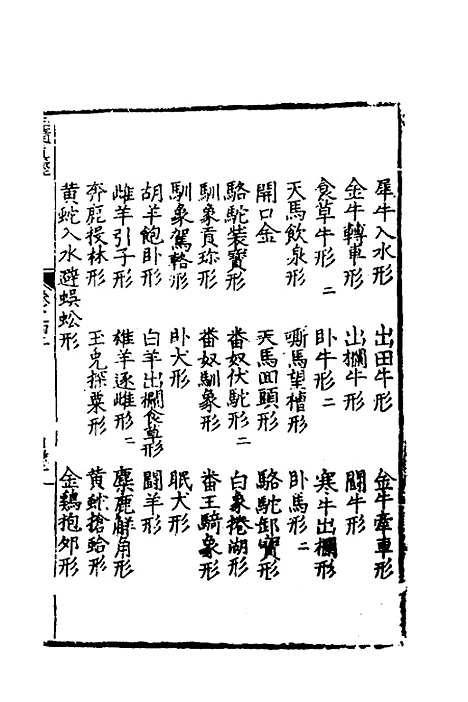 犀牛入水形　出田牛形　金牛牽車形
金牛轉車形　出欄牛形　鬪牛形
食草牛形二　臥牛形二　寒牛出欄形
天馬飲泉形　嘶馬望槽形　臥馬形二
開口金　天馬回頭形　駱駝卸寶形
駱駝裝寶形　番奴伏駝形二　白象捲湖形
馴象貢珎形　番奴馴象形　番王騎象形
馴象駕輅形　臥犬形　眠犬形
胡羊飽臥形　白羊出欄食草形　鬪羊形
雌羊引子形　雄羊逐雌形二　麋鹿解角形
奔鹿投林形　玉兎採粟形　黄蛇搶蛤形
黄蛇入水避蜈蚣形　金鷄抱夘形